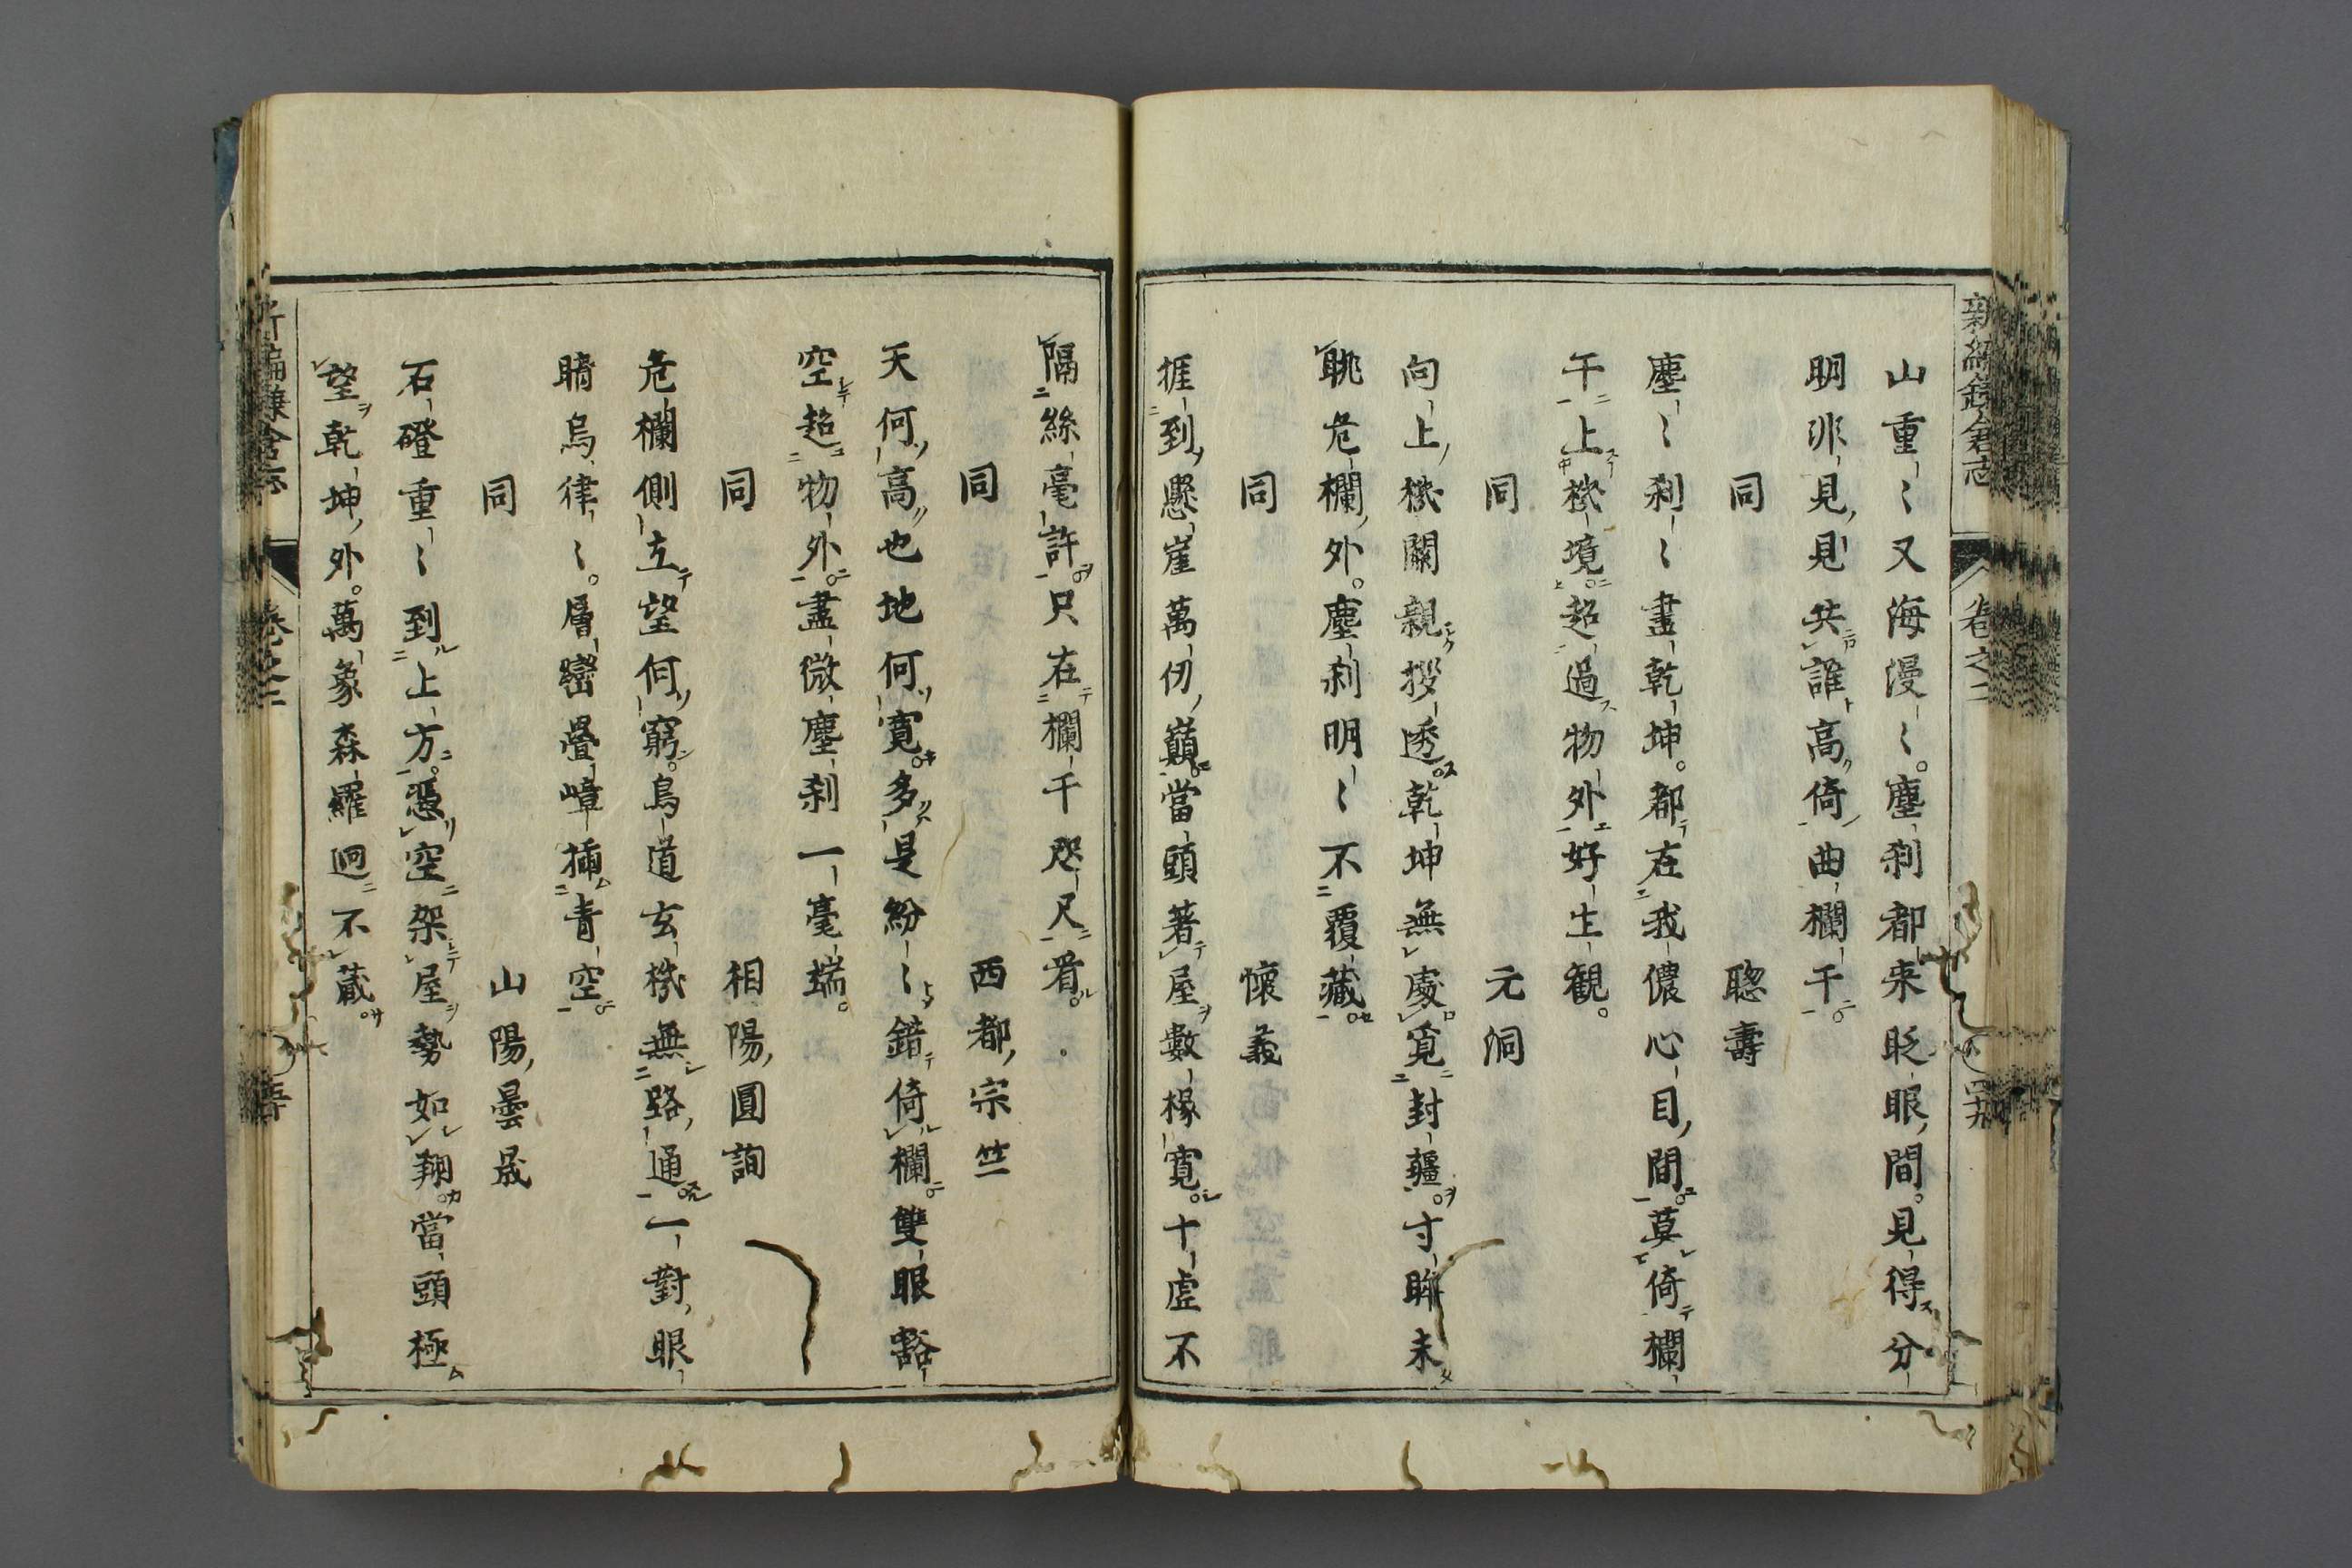 新編鎌倉志
卷之二
山重〻又海漫〻。塵刹都来眨眼間。見得分
明非見見共誰高倚曲欄干。
同 聰壽
塵〻刹〻盡乾坤。都在我儂心目間。莫倚欄
干上機境。超過物外好生観。
同 元洞
向上機關親拶透。乾坤無處覓封疆。寸眸未
眺危欄外。塵刹明〻不覆藏。
同 懷義
捱到懸崖萬仞巓。當頭著屋數椽寬。十虛不
隔絲毫許。只在欄干咫尺看。
同 西都宗竺
天何高也地何寬。多是紛〻錯倚欄。雙眼豁
空超物外。盡微塵刹一毫端。
同 相陽圓詢
危欄側立望何窮。鳥道玄機無路通。一對眼
睛烏律〻。層巒疊嶂插青空。
同 山陽曇晟
石磴重〻到上方。憑空架屋勢如翔。當頭極
望乾坤外。萬象森羅迥不藏。
新編鎌倉志
卷之二